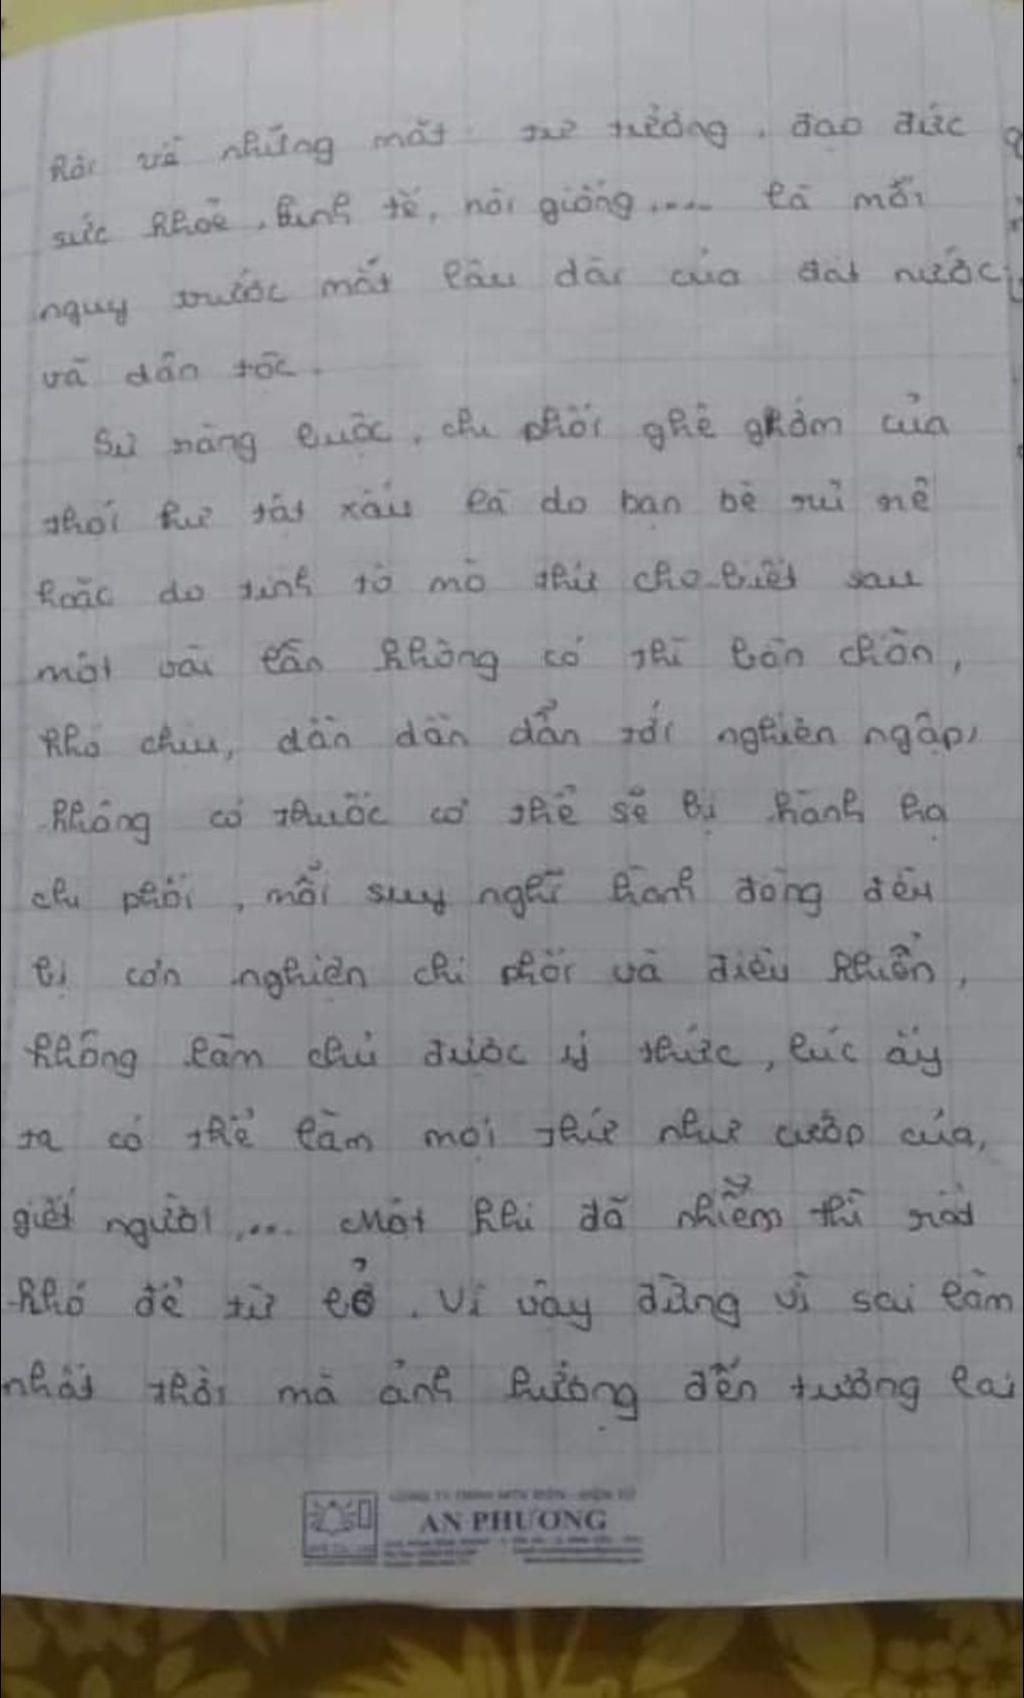 hội về những mặt tư tưởng, đạo đức
sức khỏe, kinh tế, nòi giống.... là mối
nguy trước mắt lâu dài của đất nước
và dân tộc.
Sự ràng buộc, chi phối ghê ghớm của
thói hư tật xấu là do bạn bè rủ rê
hoặc do tính tò mò thử cho biết sau
một vài lần không có thì bồn chồn,
khó chịu, dần dần dẫn tới nghiện ngập,
không có thuốc cơ thể sẽ bị hành hạ
chi phối, mỗi suy nghĩ hành động đều
bị cơn nghiện chi phối và điều khuển,
không làm chủ được ý thức, lúc ấy
ta có thể làm mọi thứ như cướp của,
giết người,... Một khi đã nhiễm thì rất
khó để từ bỏ. Vì vậy đừng vì sai lầm
nhất thời mà ảnh hưởng đến tương lai
AN PHUONG